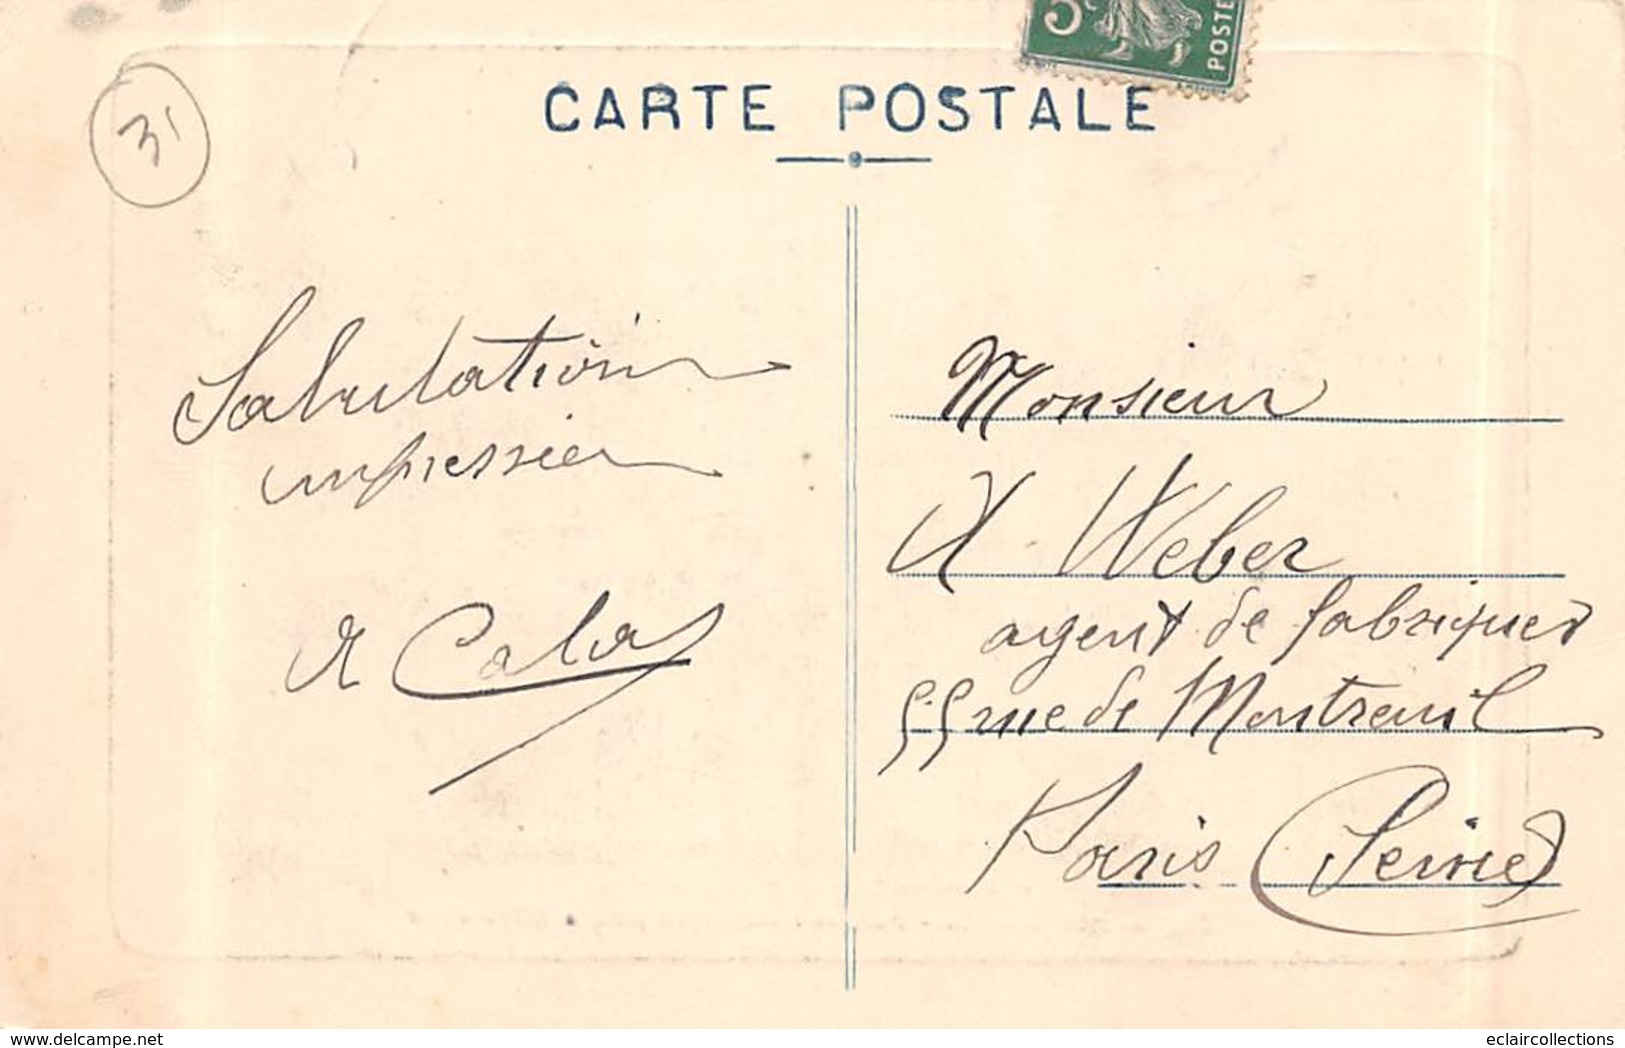 5c
POSTE
CARTE POSTALE
31
Salutation
empressée
A Calas
Monsieur
X Weber
agent de fabriques
55 rue de Montreuil
Paris (Seine)
www.delcampe.net
eclaircollections